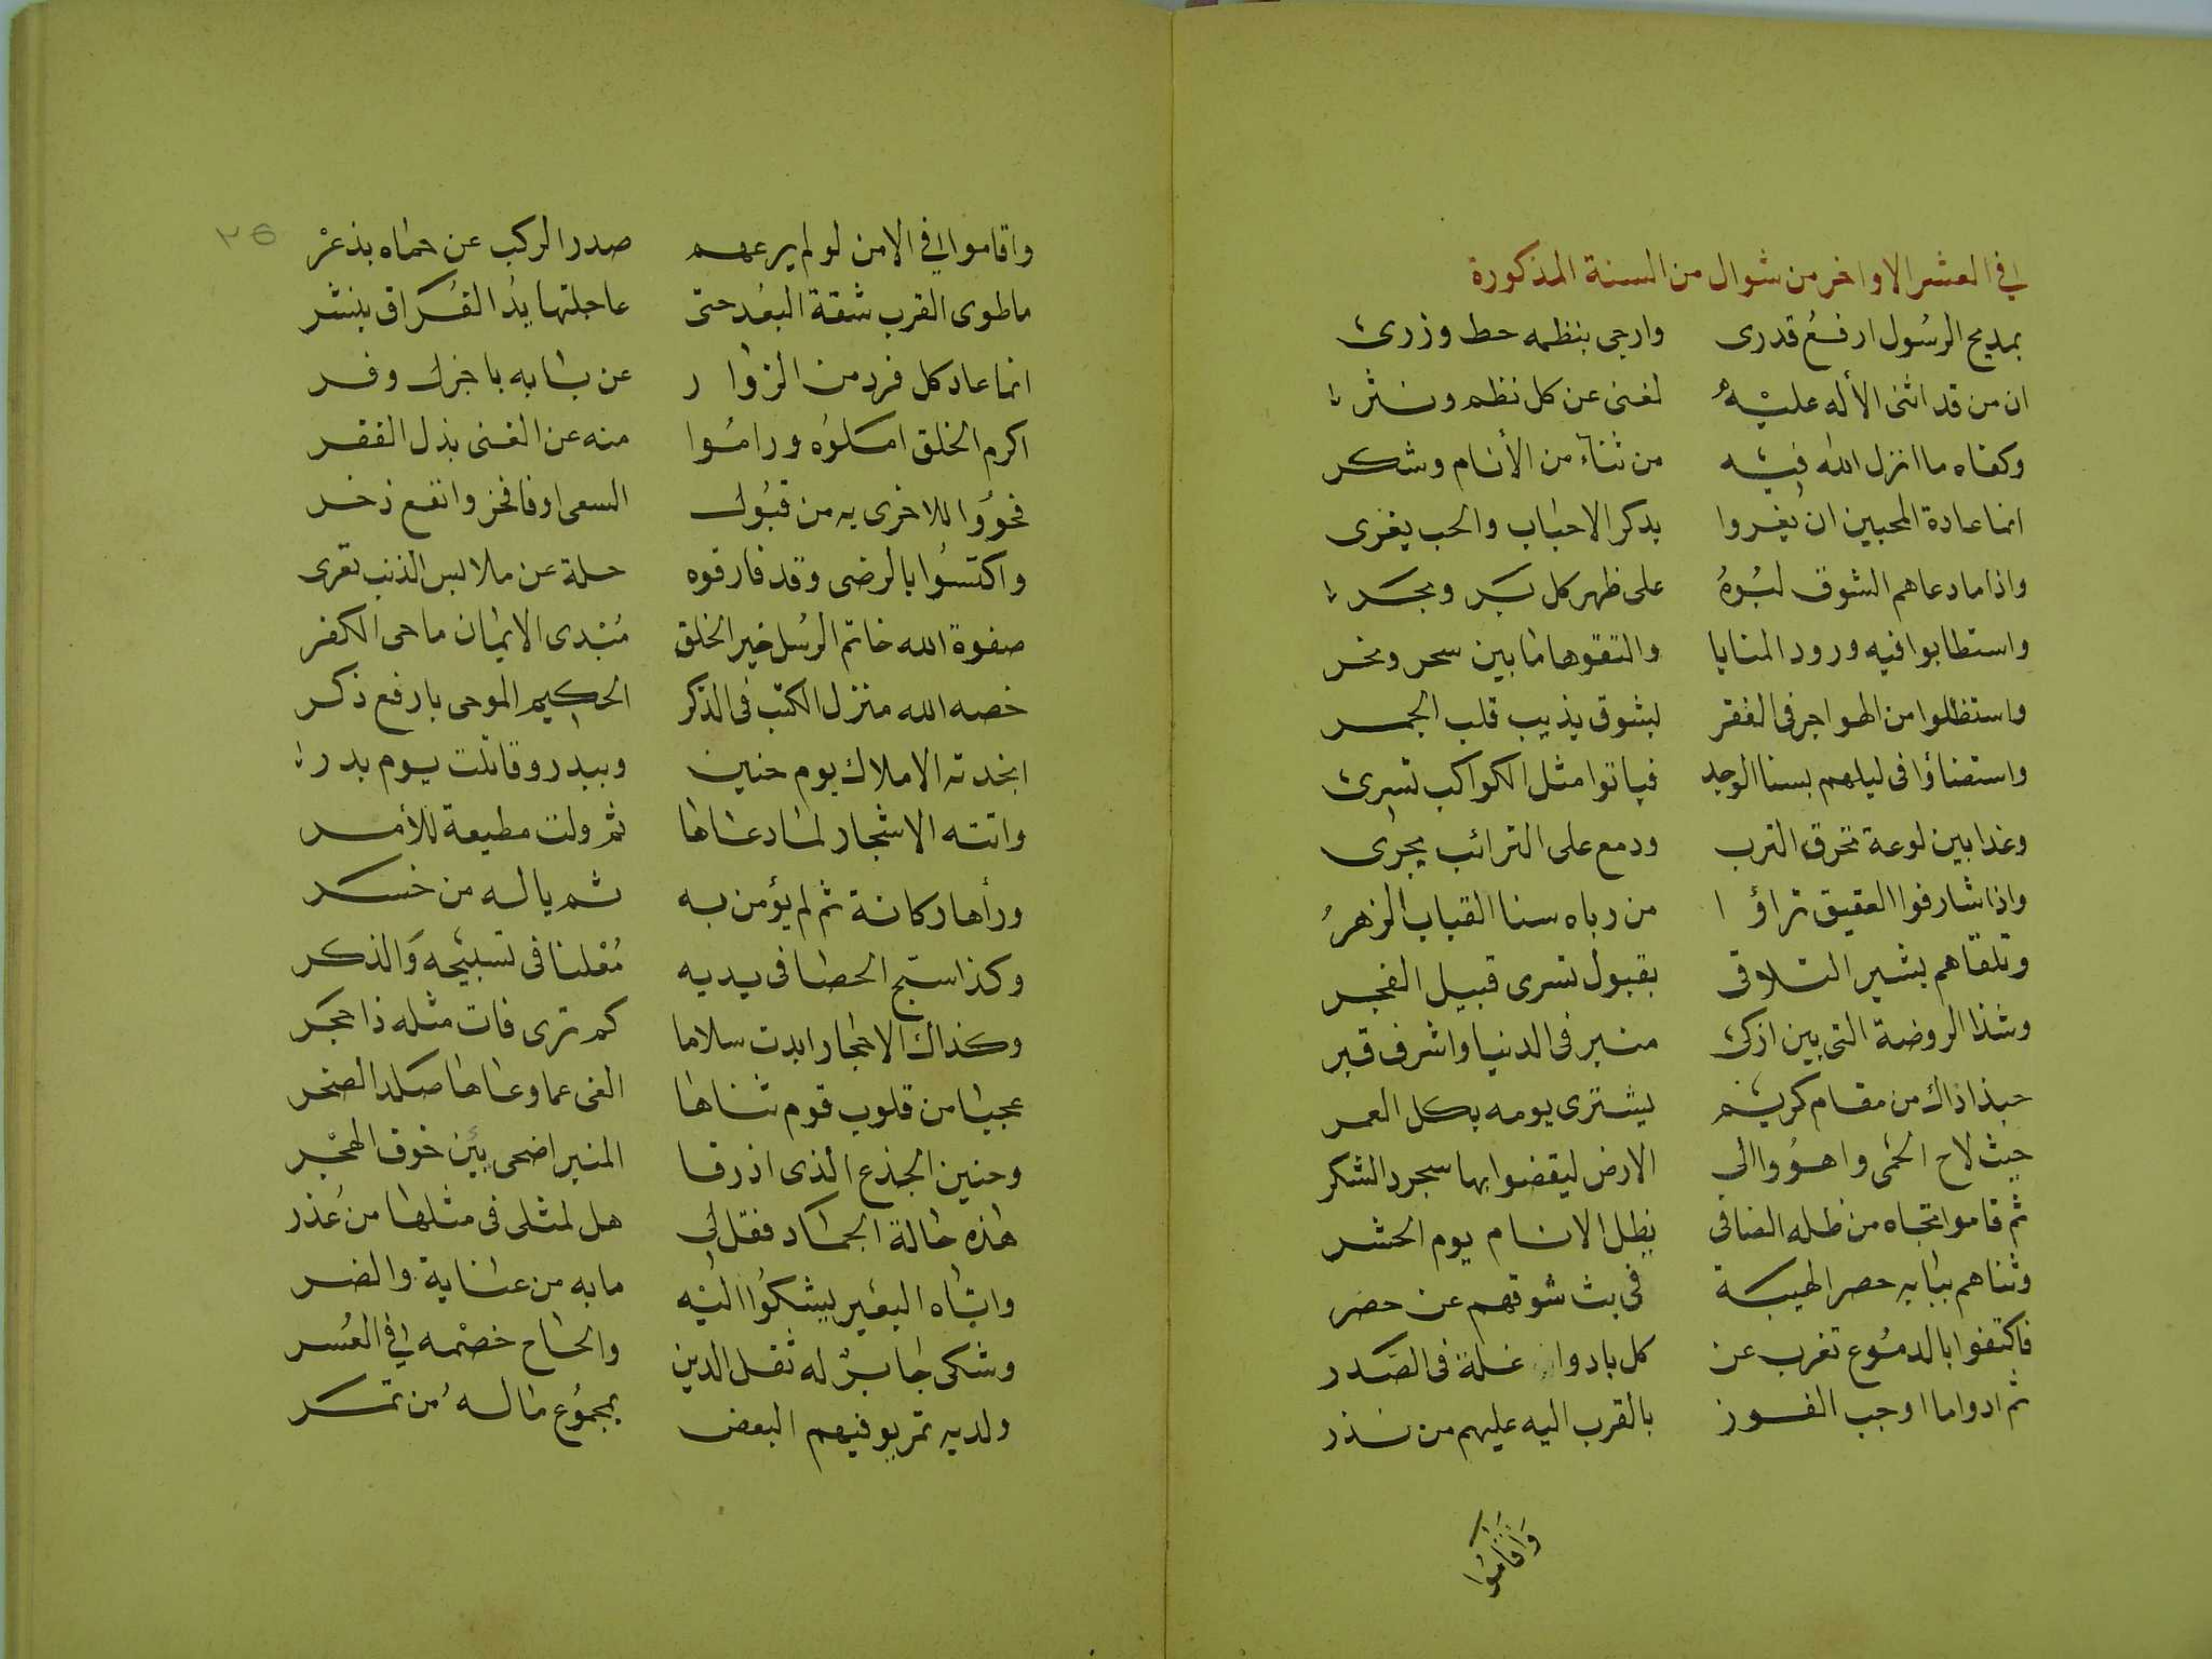 في العشر الاواخر من شوال من السنة المذكورة
بمديح الرسُول ارفعُ قدرى وارجى بنظمه حط وزرى
ان من قد اثنى الأله عليْه لغنى عن كل نظم ونثر
وكفاه ما انزل الله فيه من ثناء من الأنام وشكر
انما عادة المحبين ان يغروا بذكر الاحباب والحب يغرى
واذا ما دعاهم الشوق لبُوهُ على ظهر كل بَر وبحر
واستطابوا فيه ورود المنايا والتقوها ما بين سحر ونحر
واستظلوا من الهواجر فى القفر بشوق يذيب قلب الجمر
واستضاؤا فى ليلهم بسنا الوجد فباتوا مثل الكواكب تسرى
وغدا بين لوعة تحرق الترب ودمع على الترائب يجرى
واذا شارفوا العقيق تراؤا من رباه سنا القباب الزهرُ
وتلقاهم بشير التلاقى بقبول تسرى قبيل الفجر
وشذا الروضة التى بين ازكى منبر فى الدنيا واشرف قبر
حبذا ذاك من مقام كريم يشترى يومه بكل العمر
حيث لاح الحمى واهوُوا الى الارض ليقضوا بها سجود الشكر
ثم قاموا تجاه من ظله الضافى يظل الانام يوم الحشر
وثناهم ببابه حصر الهيبة فى بث شوقهم عن حصر
فاكتفوا بالدمُوع تغرب عن كل باد غلة فى الصَدر
ثم ادوا ما اوجب الفوز بالقرب اليه عليهم من نذر
وَاقامُوا
٢٥
واقاموا في الامن لو لم يرعهم صدر الركب عن حماه بذعرْ
ما طوى القرب شقة البُعد حتى عاجلتها يدُ الفراق بنشر
انما عاد كل فرد من الزوار عن بابه باجزل وفر
اكرم الخلق امّلوُه ورامُوا منه عن الغنى بذل الفقر
فحوُوا للاخرى به من قبُول السعى اوفا فخر وانفع ذخر
واكتسُوا بالرضى وقد فارقوه حلة عن ملابس الذنب تعرى
صفوة الله خاتم الرُسل خير الخلق مُبْدى الايمان ماحى الكفر
خصه الله منزل الكتب فى الذكر الحكيم الموحى بارفع ذكر
انجدته الاملاك يوم حنين وببدر وقاتلت يوم بدر
واتته الاشجار لما دعاها ثم ولت مطيعة للأمر
ورأها ركانة ثم لم يؤمن به ثم ياله من خسر
وكذا سبّح الحصا فى يديه مُعْلنا فى تسبيحه وَالذكر
وكذاك الاحجار ابدت سلاما كم ترى فات مثله ذا حجر
عجبا من قلوب قوم ثناها الغى عما وعاها صلد الصخر
وحنين الجذع الذى اذ رقا المنبر اضحى بيْن خوف الهجْر
هاذه حالة الجماد فقل لى هل لمثلى فى مثلها من عُذر
واتاه البعير يشكُوا اليْه مابه من عناية والضر
وشكى جابرٌ له ثقل الدين والحاح خصْمه في العُسر
ولديه تمر يوفيهم البعض بمجمُوع ماله مُن تمر